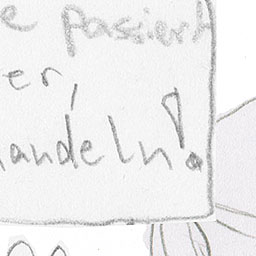 e passiert
er,
andeln!